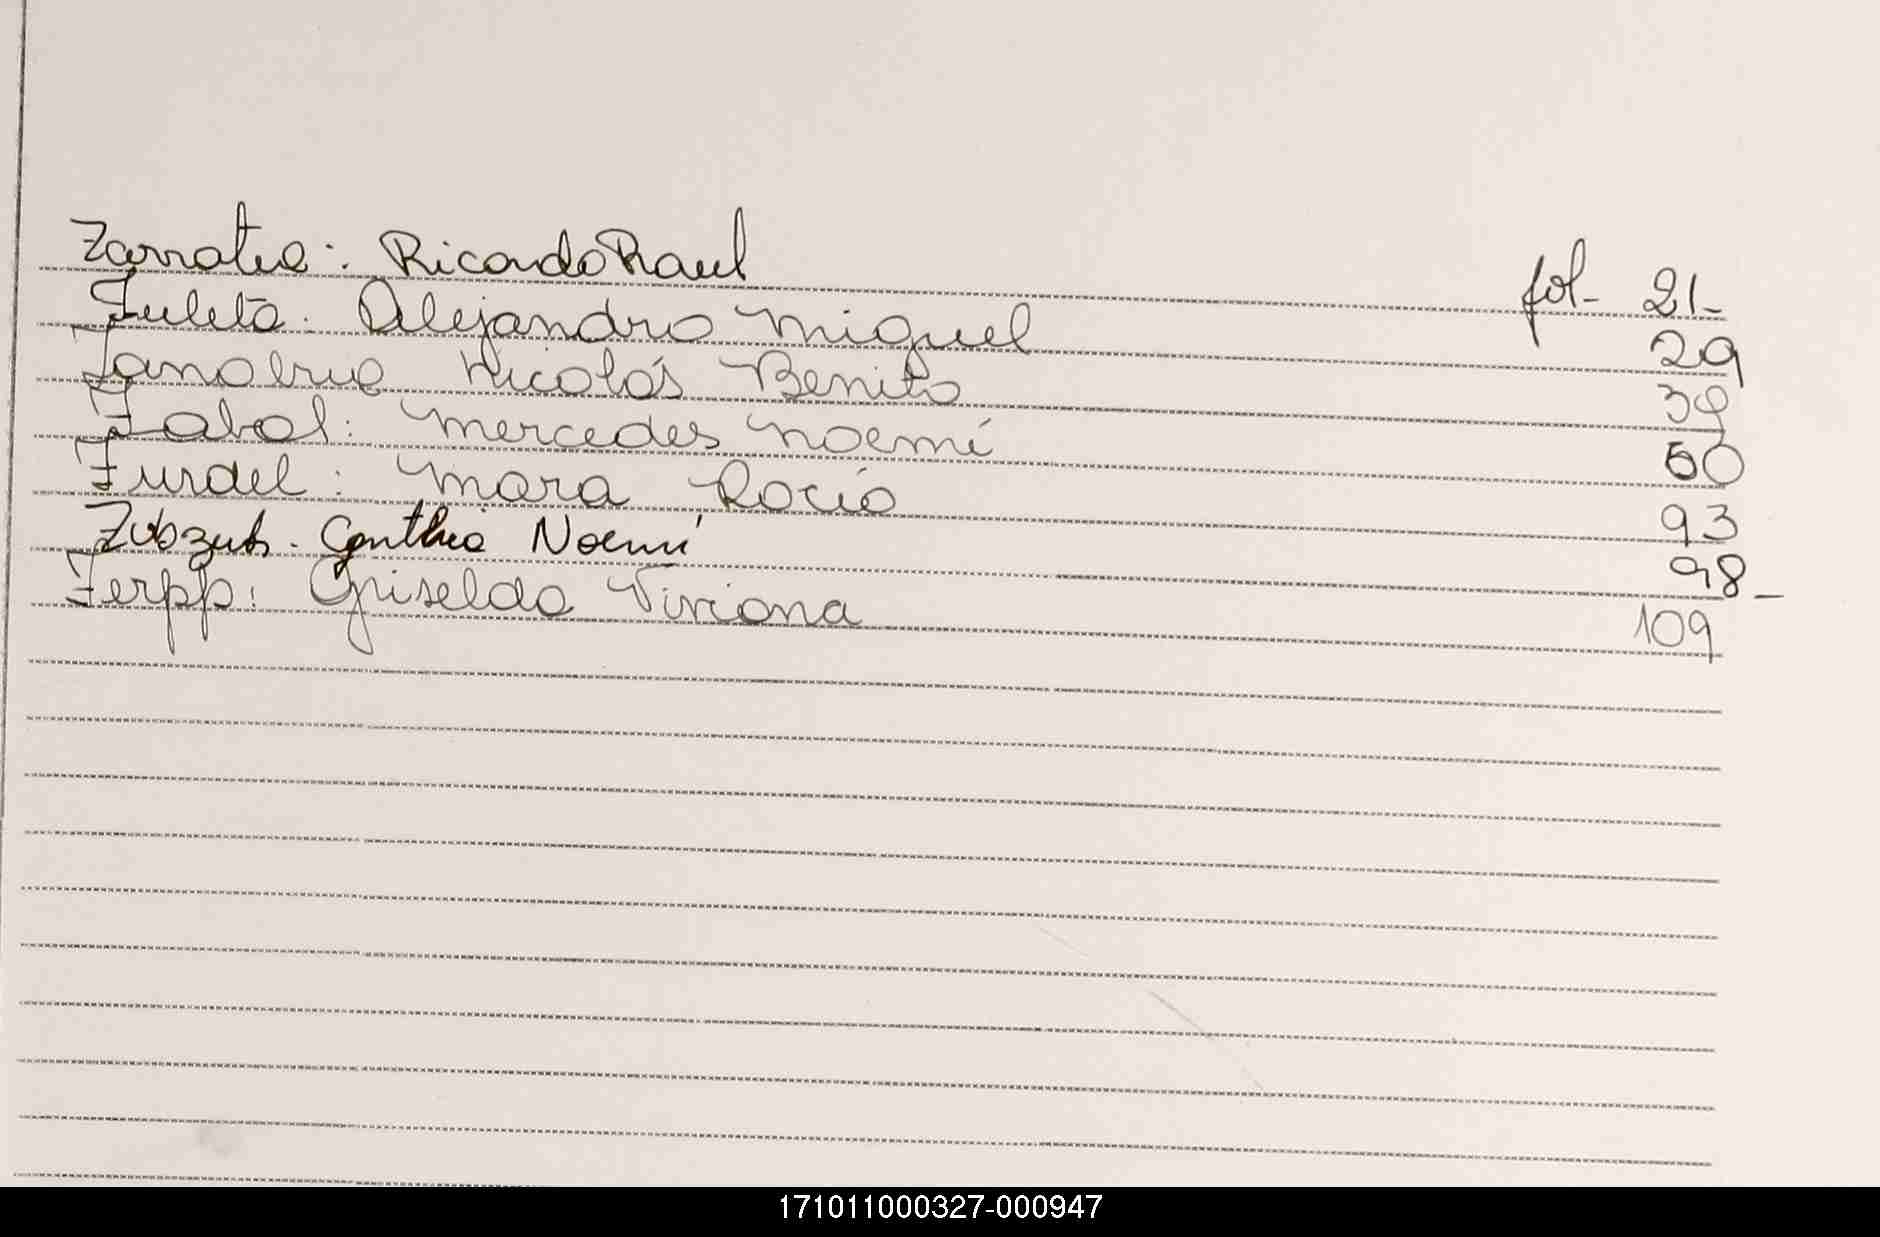 Zarratea: Ricardo Raul fol- 21-
Zuleta. Alejandro Miguel 29
Nicolás Benito 39
Zabal: Mercedes Noemí 60
Zurdel: Mara Rocío 93
Cynthia Noemí 98-
Zerpp: Griselda Viviana 109
171011000327-000947